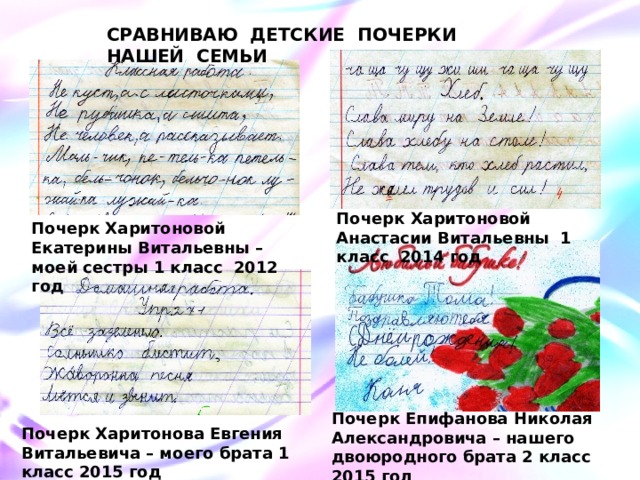 СРАВНИВАЮ ДЕТСКИЕ ПОЧЕРКИ
НАШЕЙ СЕМЬИ
Классная работа.
Не куст, а с листочками,
Не рубашка, а сшита,
Не человек, а рассказывает.
Маль-чик, пе-тель-ка петель-
ка, бель-чонок, бельчо-нок лу-
жайка лужай-ка.
Почерк Харитоновой
Екатерины Витальевны –
моей сестры 1 класс 2012
год
ча ща чу щу жи ши ча ща чу щу
Хлеб.
Слава миру на Земле!
Слава хлебу на столе!
Слава тем, кто хлеб растил,
Не жалел трудов и сил! 4
Почерк Харитоновой
Анастасии Витальевны 1
класс 2014 год
Домашняя работа.
Упр
Всё зазеленело.
Солнышко блестит,
Жаворонка песня
Льётся и звенит.
Почерк Харитонова Евгения
Витальевича – моего брата 1
класс 2015 год
Любимой бабушке!
Бабушка Тома!
Поздравляю тебя
С Днём рождения!
Не болей.
Почерк Епифанова Николая
Александровича – нашего
двоюродного брата 2 класс
2015 год